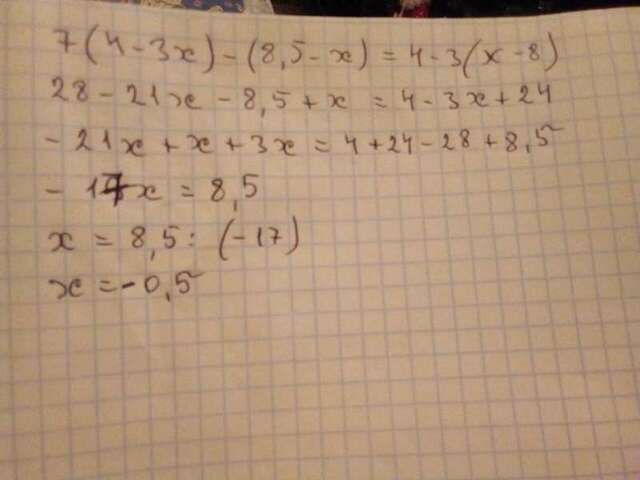 7(4-3x)-(8,5-x)=4-3(x-8)
28-21x-8,5+x=4-3x+24
-21x+x+3x=4+24-28+8,5
-17x=8,5
x=8,5:(-17)
x=-0,5